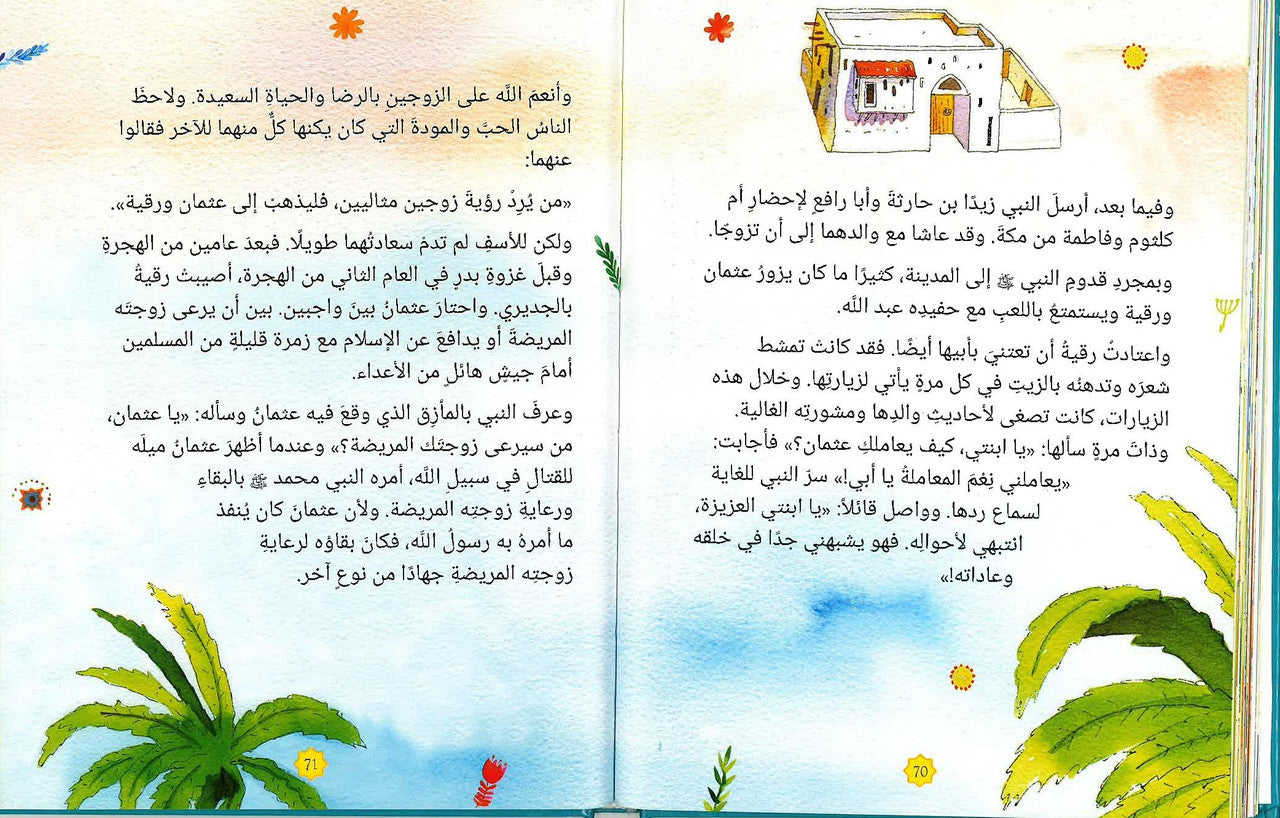 وفيما بعد، أرسلَ النبي زيدًا بن حارثةَ وأبا رافعٍ لإحضارِ أم
كلثوم وفاطمة من مكةَ. وقد عاشا مع والدهما إلى أن تزوجًا.
وبمجردِ قدومِ النبي ﷺ إلى المدينة، كثيرًا ما كان يزورُ عثمان
ورقية ويستمتعُ باللعبِ مع حفيدِه عبد اللَّه.
واعتادتْ رقيةُ أن تعتنيَ بأبيها أيضًا. فقد كانتْ تمشط
شعرَه وتدهنُه بالزيتِ في كل مرةٍ يأتي لزيارتِها. وخلال هذه
الزيارات، كانت تصغى لأحاديثِ والدِها ومشورتِه الغالية.
وذاتَ مرةٍ سألها: «يا ابنتي، كيف يعاملكِ عثمان؟» فأجابت:
«يعاملني نِعْمَ المعاملةُ يا أبي!» سرّ النبي للغاية
لسماع ردها. وواصل قائلاً: «يا ابنتي العزيزة،
انتبهي لأحوالِه. فهو يشبهني جدًا في خلقه
وعاداته!»
70
وأنعمَ اللَّه على الزوجينِ بالرضا والحياةِ السعيدة. ولاحظَ
الناسُ الحبَّ والمودةَ التي كان يكنها كلٌّ منهما للآخر فقالوا
عنهما:
«من يُرِدْ رؤيةَ زوجين مثاليين، فليذهبْ إلى عثمان ورقية».
ولكن للأسفِ لم تدمْ سعادتُهما طويلًا. فبعدَ عامين من الهجرةِ
وقبلَ غزوةِ بدرٍ في العام الثاني من الهجرة، أصيبتْ رقيةُ
بالجديري. واحتارَ عثمانُ بينَ واجبين. بين أن يرعى زوجتَه
المريضةَ أو يدافعَ عن الإسلام مع زمرة قليلةٍ من المسلمين
أمامَ جيشٍ هائلٍ من الأعداء.
وعرفَ النبي بالمأزقِ الذي وقعَ فيه عثمانُ وسأله: «يا عثمان،
من سيرعى زوجتَك المريضة؟» وعندما أظهرَ عثمانُ ميلَه
للقتالِ في سبيلِ اللَّه، أمره النبي محمد ﷺ بالبقاءِ
ورعايةِ زوجتِه المريضة. ولأن عثمانَ كان يُنفذ
ما أمرهُ به رسولُ اللَّه، فكانَ بقاؤه لرعايةِ
زوجتِه المريضةِ جهادًا من نوعٍ آخر.
71